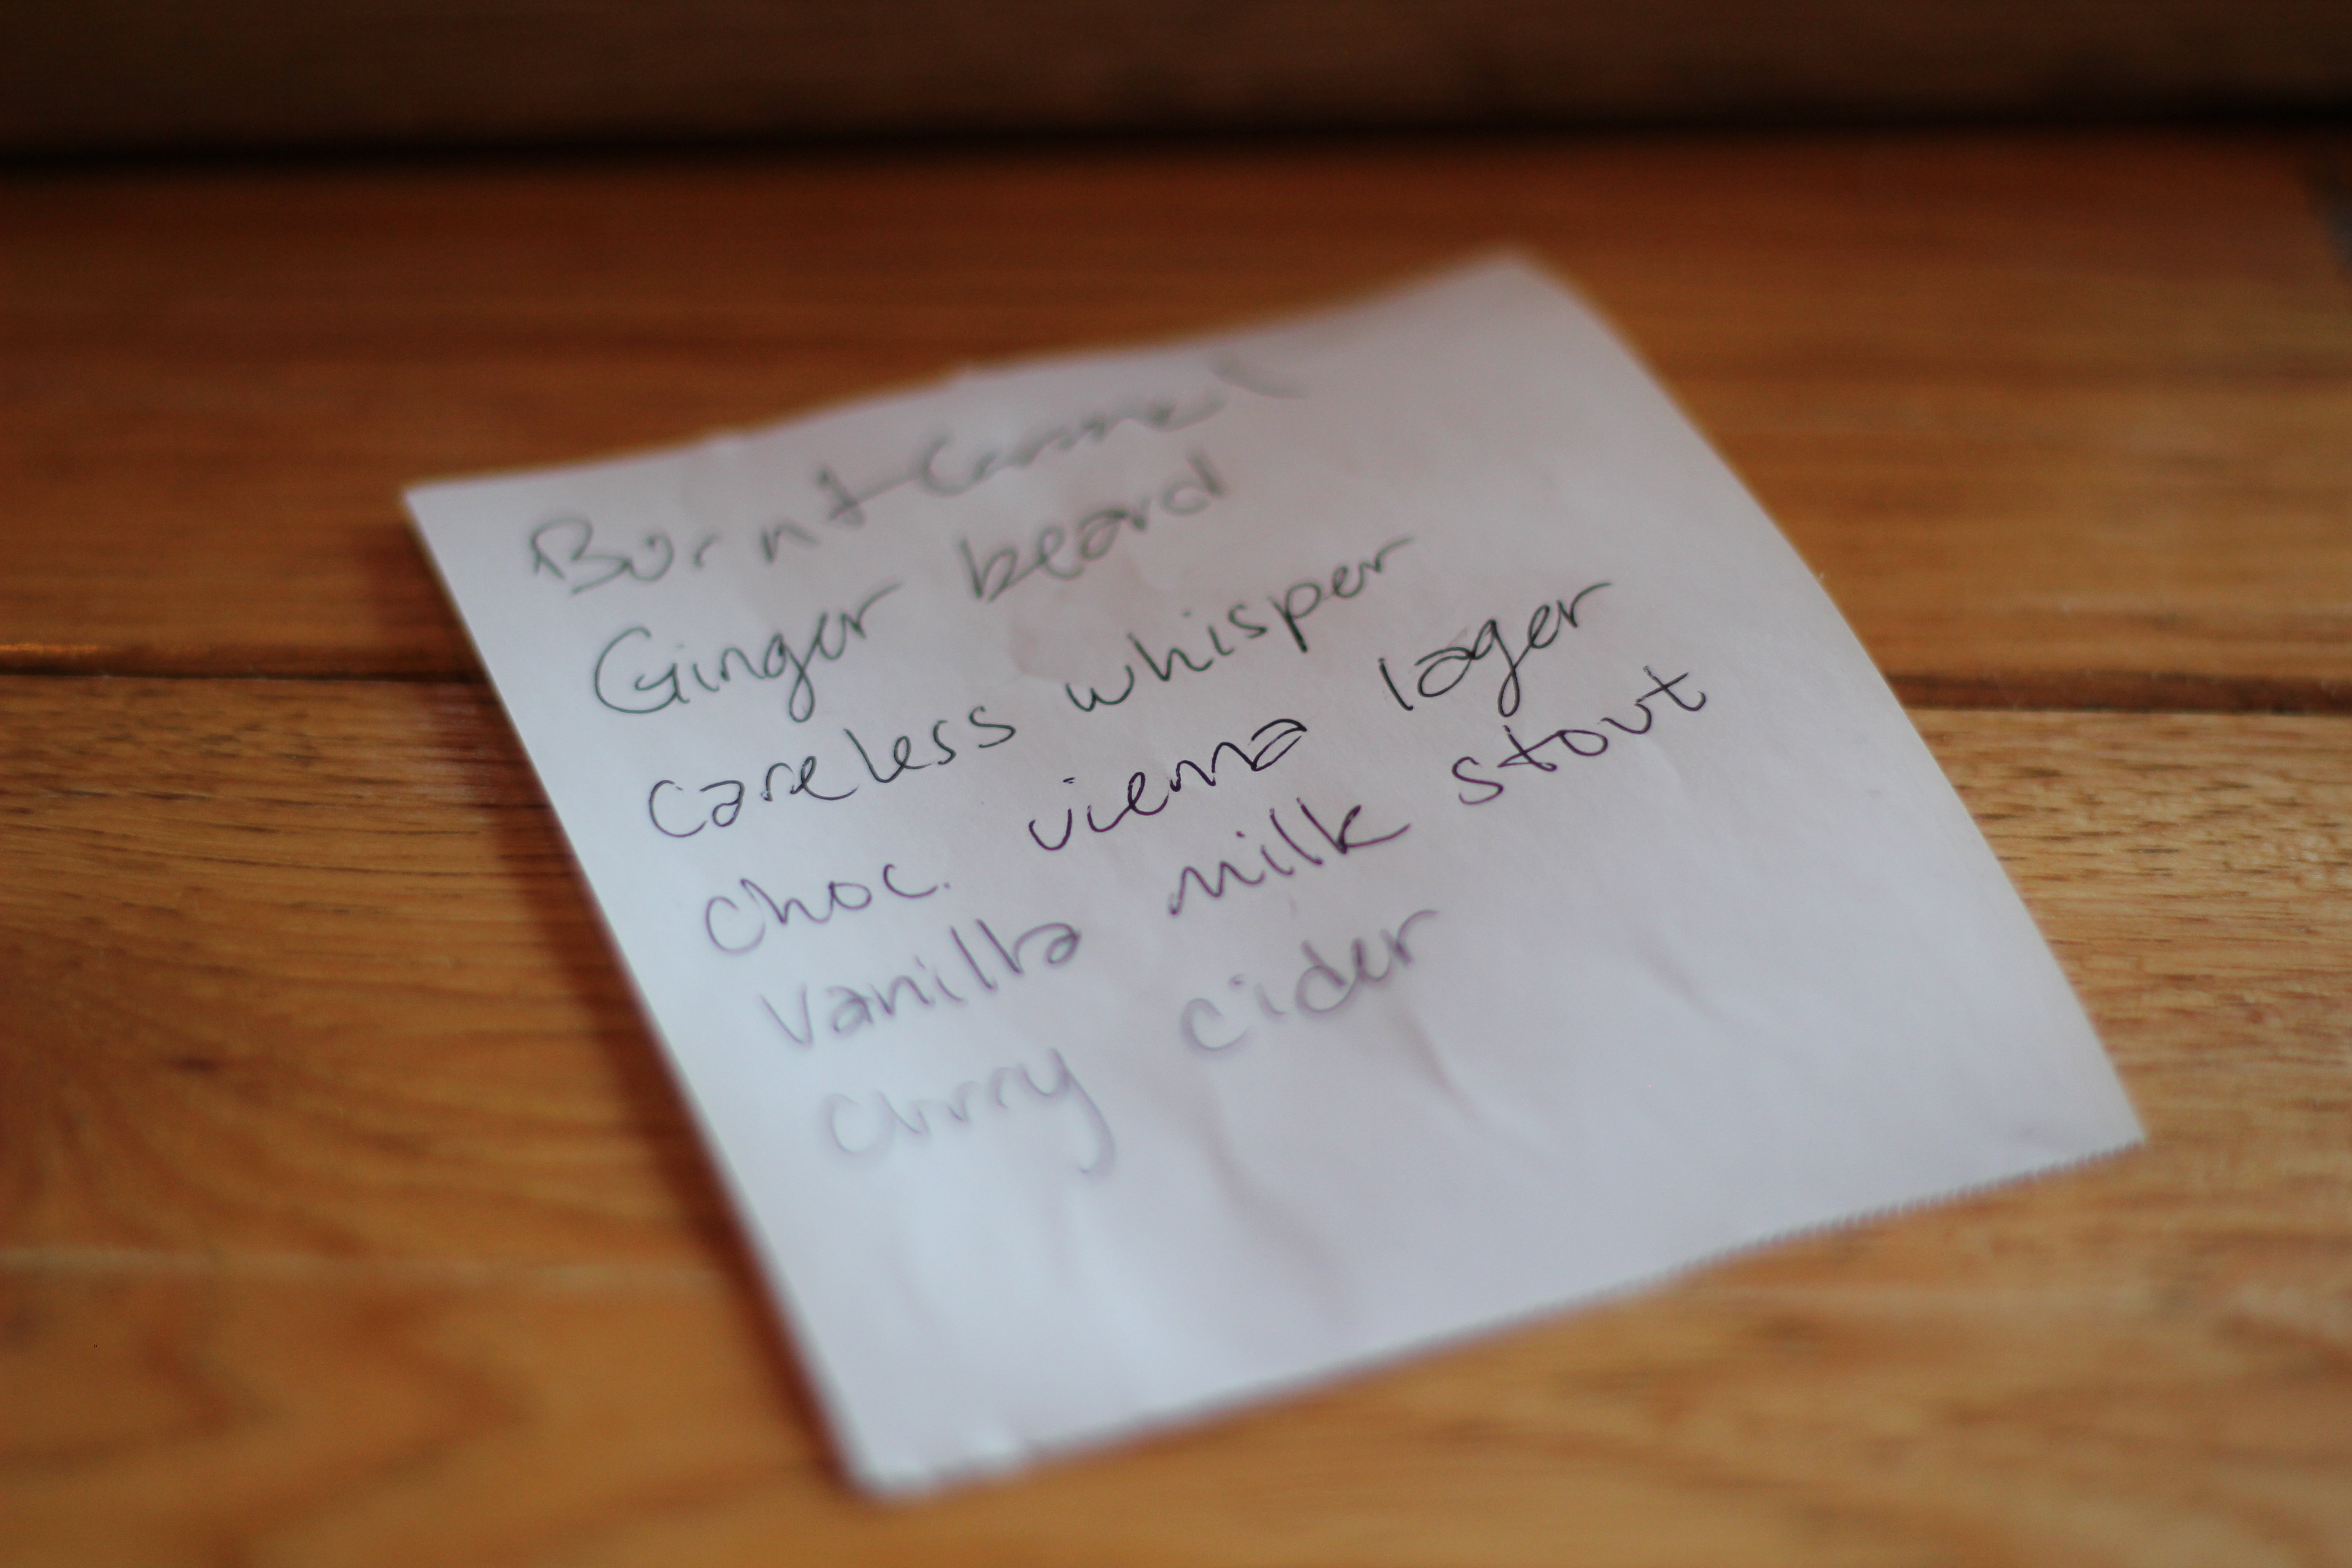 Burnt Caramel
Ginger beard
careless whisper
choc. vienna lager
vanilla milk stout
curry cider